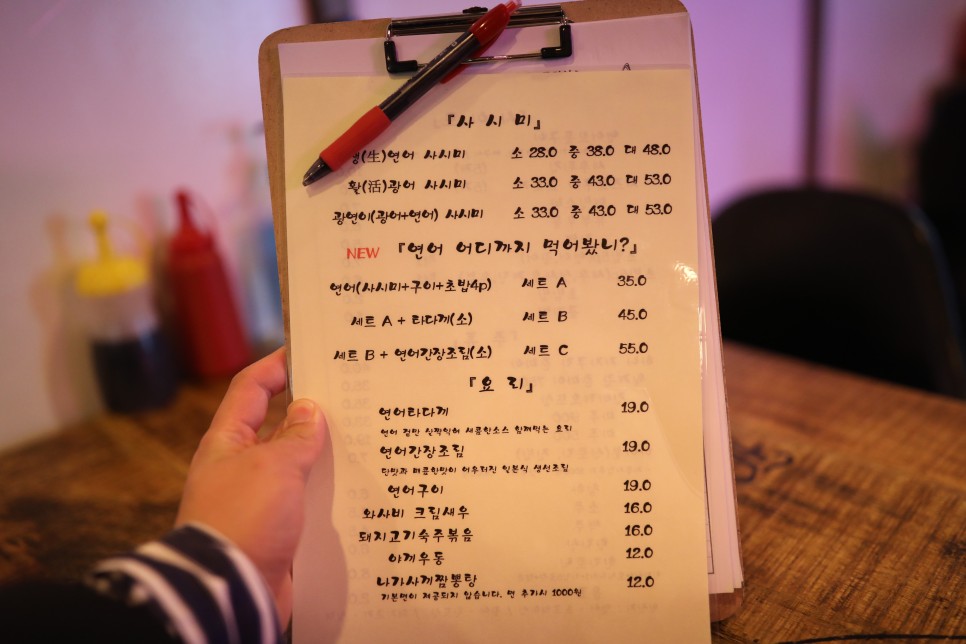 『사 시 미』
(生)연어 사시미 소 28.0 중 38.0 대 48.0
활(活)광어 사시미 소 33.0 중 43.0 대 53.0
광연이(광어+연어) 사시미 소 33.0 중 43.0 대 53.0
NEW 『연어 어디까지 먹어봤니?』
연어(사시미+구이+초밥4p) 세트 A 35.0
세트 A + 타다끼(소) 세트 B 45.0
세트 B + 연어간장조림(소) 세트 C 55.0
『요 리』
연어타다끼 19.0
연어 겉만 살짝익혀 새콤한소스 함께먹는 요리
연어간장조림 19.0
단맛과 매콤한맛이 어우러진 일본식 생선조림
연어구이 19.0
와사비 크림새우 16.0
돼지고기숙주볶음 16.0
야끼우동 12.0
나가사끼짬뽕탕 12.0
기본면이 제공되지 않습니다. 면 추가시 1000원